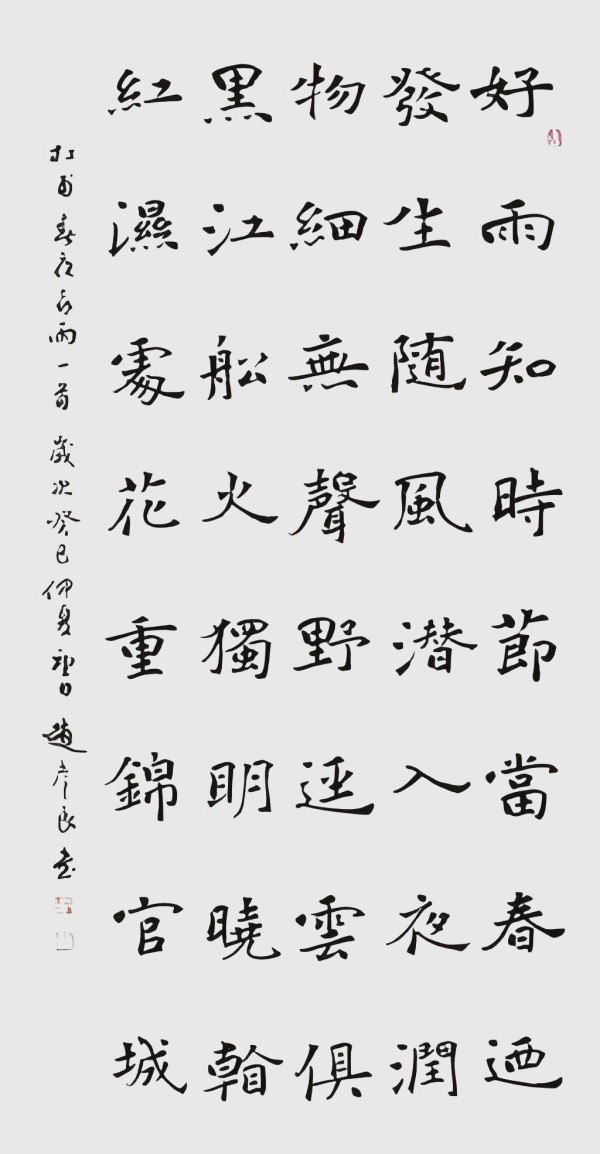 好雨知時節當春迺
發生随風潜入夜潤
物細無聲野逕雲俱
黑江舩火獨明曉看
紅濕處花重錦官城
杜甫春夜喜雨一首 歲次癸巳仲夏望日 趙彦良書